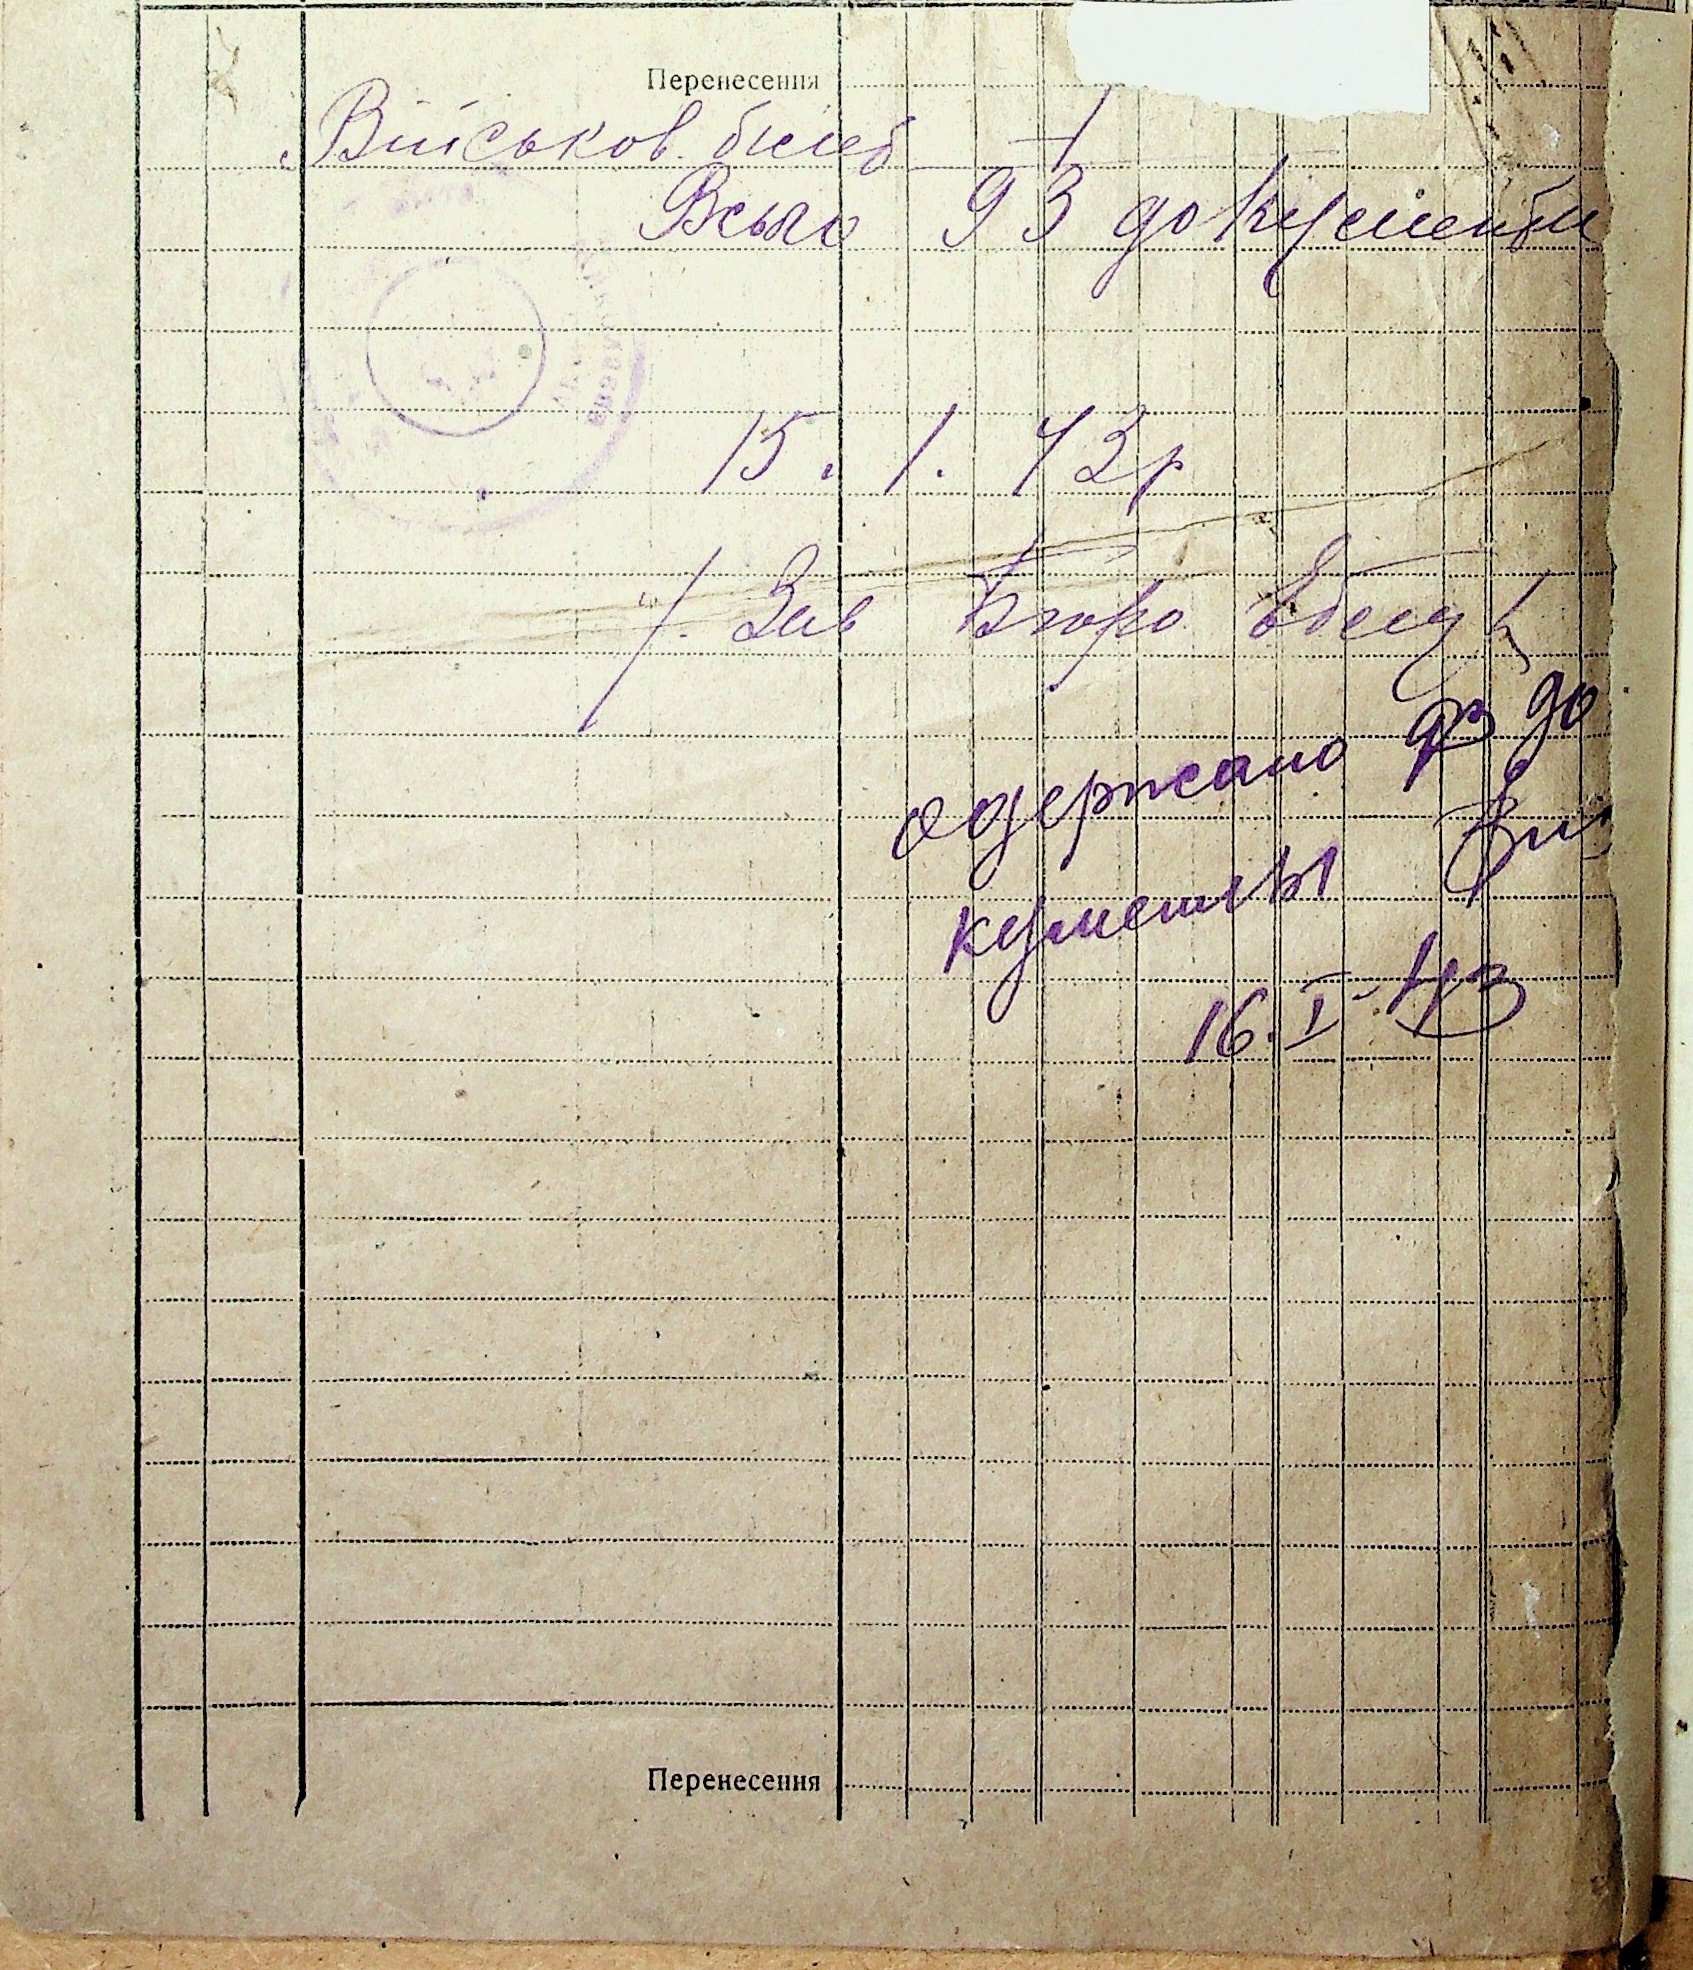 Перенесення
Військов. билеб 1
Всього 93 документи
15. 1. 43 р
Зав Бюро
одержано 93 до
кументы
16. I. 43
Перенесення